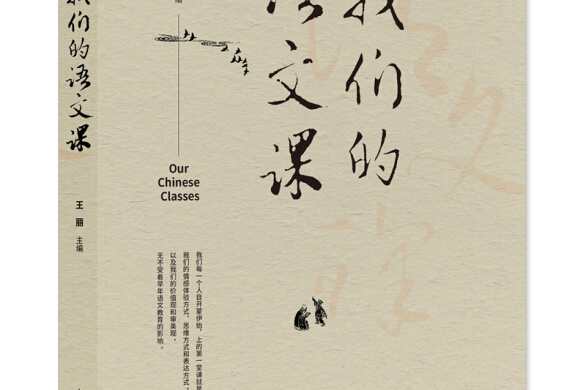 我们的语文课
王丽
主编
编
我们的
语文课
Our
Chinese
Classes
我们每一个人自开蒙伊始，上的第一堂课就是
我们的情感体验方式、思维方式和表达方式，
以及我们的价值观和审美观，
无不受着早年语文教育的影响。
语文课